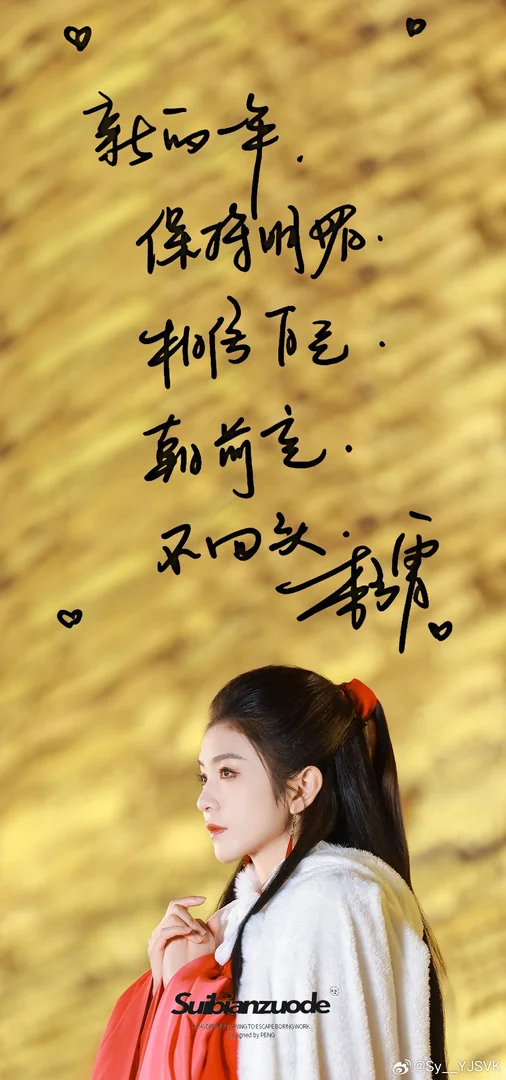 新的一年.
保持明媚.
相信自己.
朝前走.
不回头.
Suibianzuode
TO ESCAPE BORING WORK
designed by PENG
@Sy__YJSVK